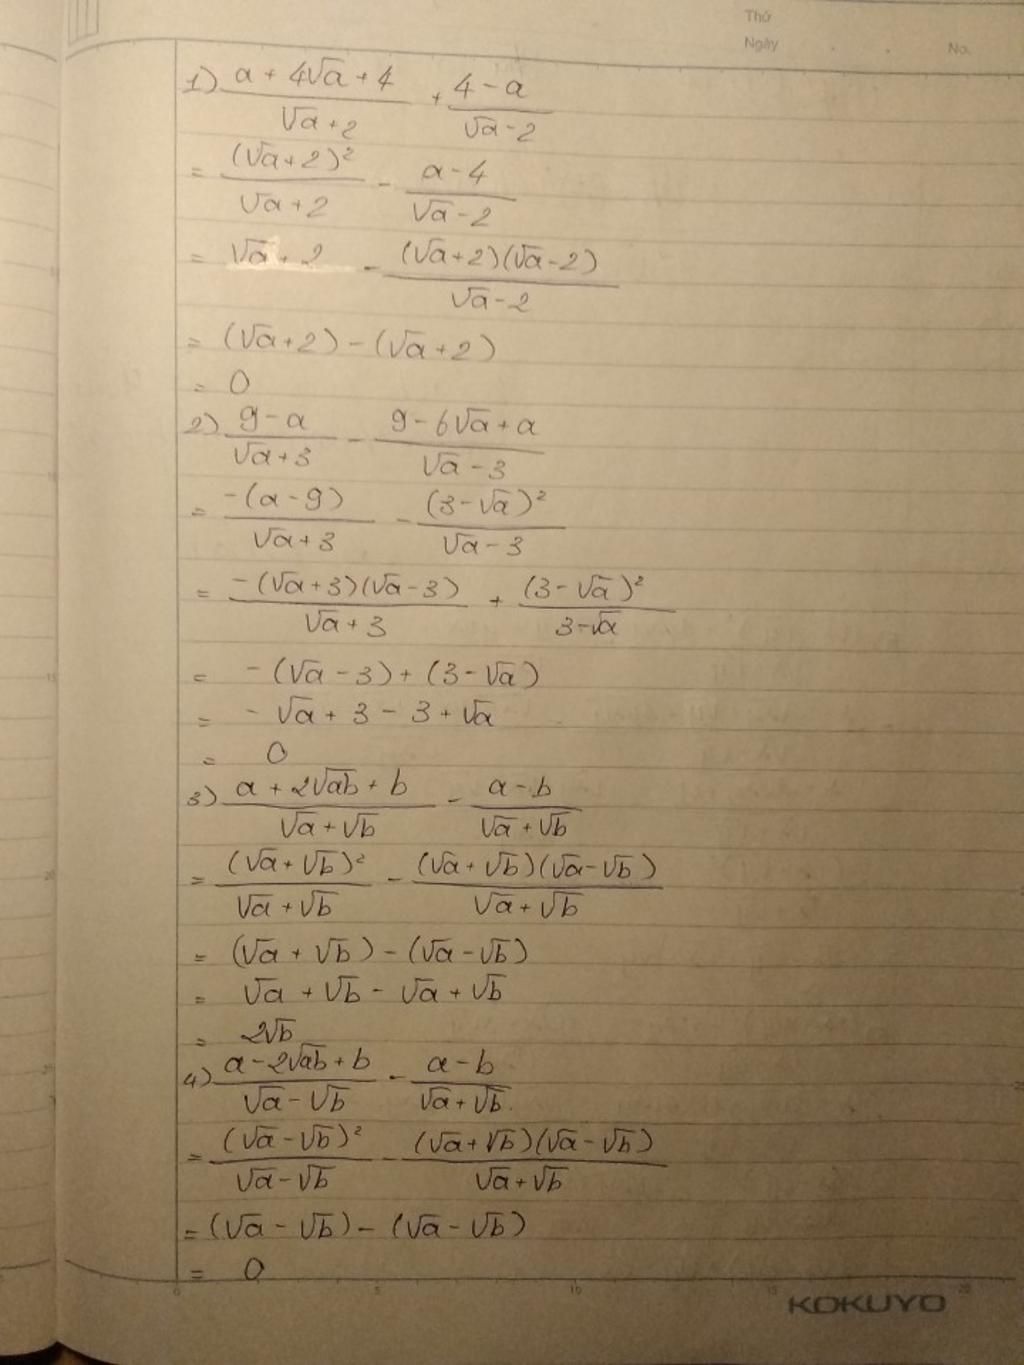 Thứ
Ngày . . No.
1) (a + 4√a + 4)/(√a + 2) + (4 - a)/(√a - 2)
= (√a + 2)²/(√a + 2) - (a - 4)/(√a - 2)
= √a + 2 - (√a + 2)(√a - 2)/(√a - 2)
= (√a + 2) - (√a + 2)
= 0
2) (9 - a)/(√a + 3) - (9 - 6√a + a)/(√a - 3)
= -(a - 9)/(√a + 3) - (3 - √a)²/(√a - 3)
= -(√a + 3)(√a - 3)/(√a + 3) + (3 - √a)²/(3 - √a)
= -(√a - 3) + (3 - √a)
= -√a + 3 - 3 + √a
= 0
3) (a + 2√ab + b)/(√a + √b) - (a - b)/(√a + √b)
= (√a + √b)²/(√a + √b) - (√a + √b)(√a - √b)/(√a + √b)
= (√a + √b) - (√a - √b)
= √a + √b - √a + √b
= 2√b
4) (a - 2√ab + b)/(√a - √b) - (a - b)/(√a + √b)
= (√a - √b)²/(√a - √b) - (√a + √b)(√a - √b)/(√a + √b)
= (√a - √b) - (√a - √b)
= 0
0 5 10 15 20
KOKUYO